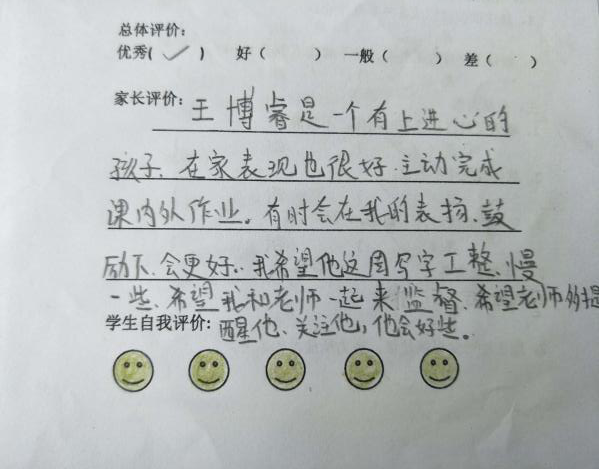 总体评价:
优秀(✓) 好( ) 一般( ) 差( )
家长评价: 王博睿是一个有上进心的
孩子、在家表现也很好.主动完成
课内外作业。有时会在我的表扬、鼓
励下、会更好.我希望他这周写字工整、慢
一些、希望我和老师一起来监督、希望老师多提
学生自我评价: 醒他、关注他,他会好些。